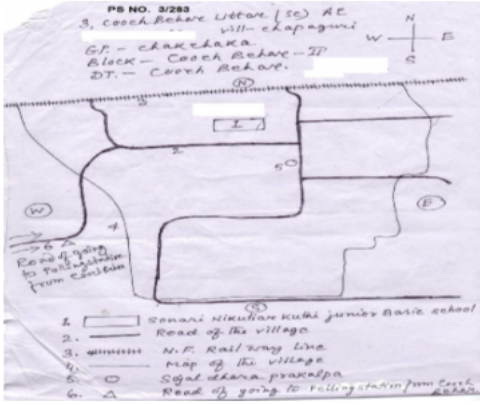 PS NO. 3/283
3, Cooch Behar Uttar (SC) AC
vill- chapaguri
GP. - chakchaka
Block - Cooch Behar - II
DT. - Cooch Behar.
N
W E
S
N
3
1
2
5
W
E
4
6
Road of going
to Polling station
from
S
1. Sonari Nikutiar Kuthi junior Basic school
2. Road of the village
3. N.F. Rail way Line
4. Map of the village
5. Sajal dhara prakalpa
6. Road of going to Polling station from Cooch
Behar